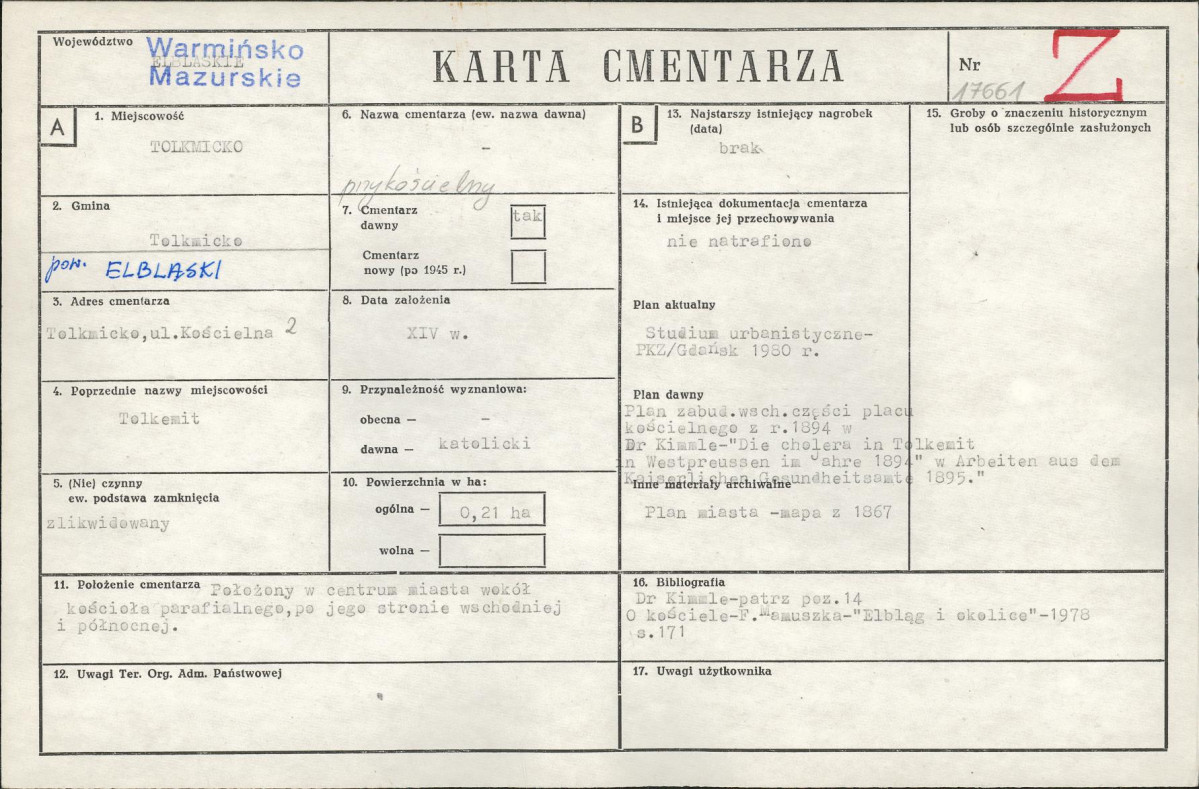 Województwo
ELBLĄSKIE
Warmińsko
Mazurskie
KARTA CMENTARZA
Nr
17661
Z
A
1. Miejscowość
TOLKMICKO
2. Gmina
Tolkmicko
pow. ELBLĄSKI
3. Adres cmentarza
Tolkmicko,ul.Kościelna 2
4. Poprzednie nazwy miejscowości
Tolkemit
5. (Nie) czynny
ew. podstawa zamknięcia
zlikwidowany
6. Nazwa cmentarza (ew. nazwa dawna)
-
przykościelny
7. Cmentarz
dawny
tak
Cmentarz
nowy (po 1945 r.)
8. Data założenia
XIV w.
9. Przynależność wyznaniowa:
obecna — -
dawna — katolicki
10. Powierzchnia w ha:
ogólna — 0,21 ha
wolna —
11. Położenie cmentarza Położony w centrum miasta wokół
kościoła parafialnego,po jego stronie wschodniej
i północnej.
12. Uwagi Ter. Org. Adm. Państwowej
B
13. Najstarszy istniejący nagrobek
(data)
brak
14. Istniejąca dokumentacja cmentarza
i miejsce jej przechowywania
nie natrafiono
Plan aktualny
Studium urbanistyczne-
PKZ/Gdańsk 1980 r.
Plan dawny
Plan zabud.wsch.części placu
kościelnego z r.1894 w
Dr Kimmle-"Die cholera in Tolkemit
in Westpreussen im Jahre 1894" w Arbeiten aus dem
Kaiserlichen Gesundheitsamte 1895."
Inne materiały archiwalne
Plan miasta -mapa z 1867
15. Groby o znaczeniu historycznym
lub osób szczególnie zasłużonych
16. Bibliografia
Dr Kimmle-patrz poz.14
O kościele-F.Mamuszka-"Elbląg i okolice"-1978
s.171
17. Uwagi użytkownika